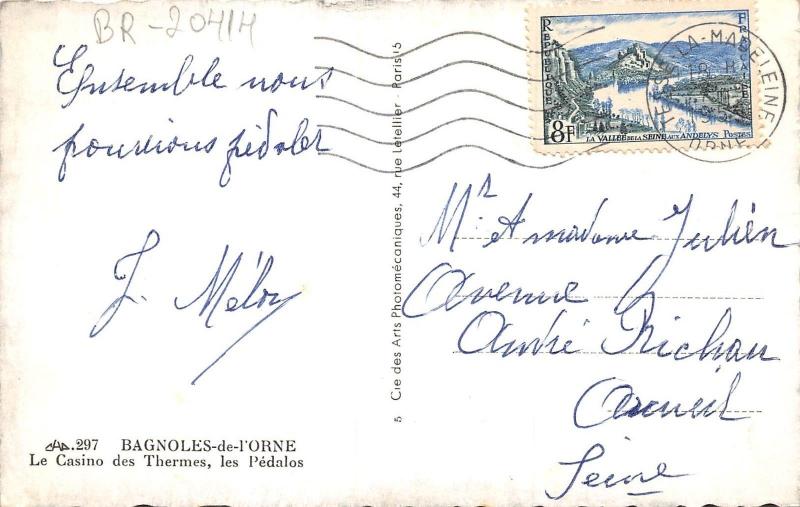 BR-20414
Ensemble nous
pourrions pédaler
J. Méloy
297 BAGNOLES-de-l'ORNE
Le Casino des Thermes, les Pédalos
5 Cie des Arts Photomécaniques, 44, rue Letellier - Paris 15
REPUBLIQUE FRANÇAISE
8F
LA VALLÉE DE LA SEINE AUX ANDELYS POSTES
LA-MADELEINE
ORNE
Mr et madame Julien
Avenue
André Richau
Arcueil
Seine